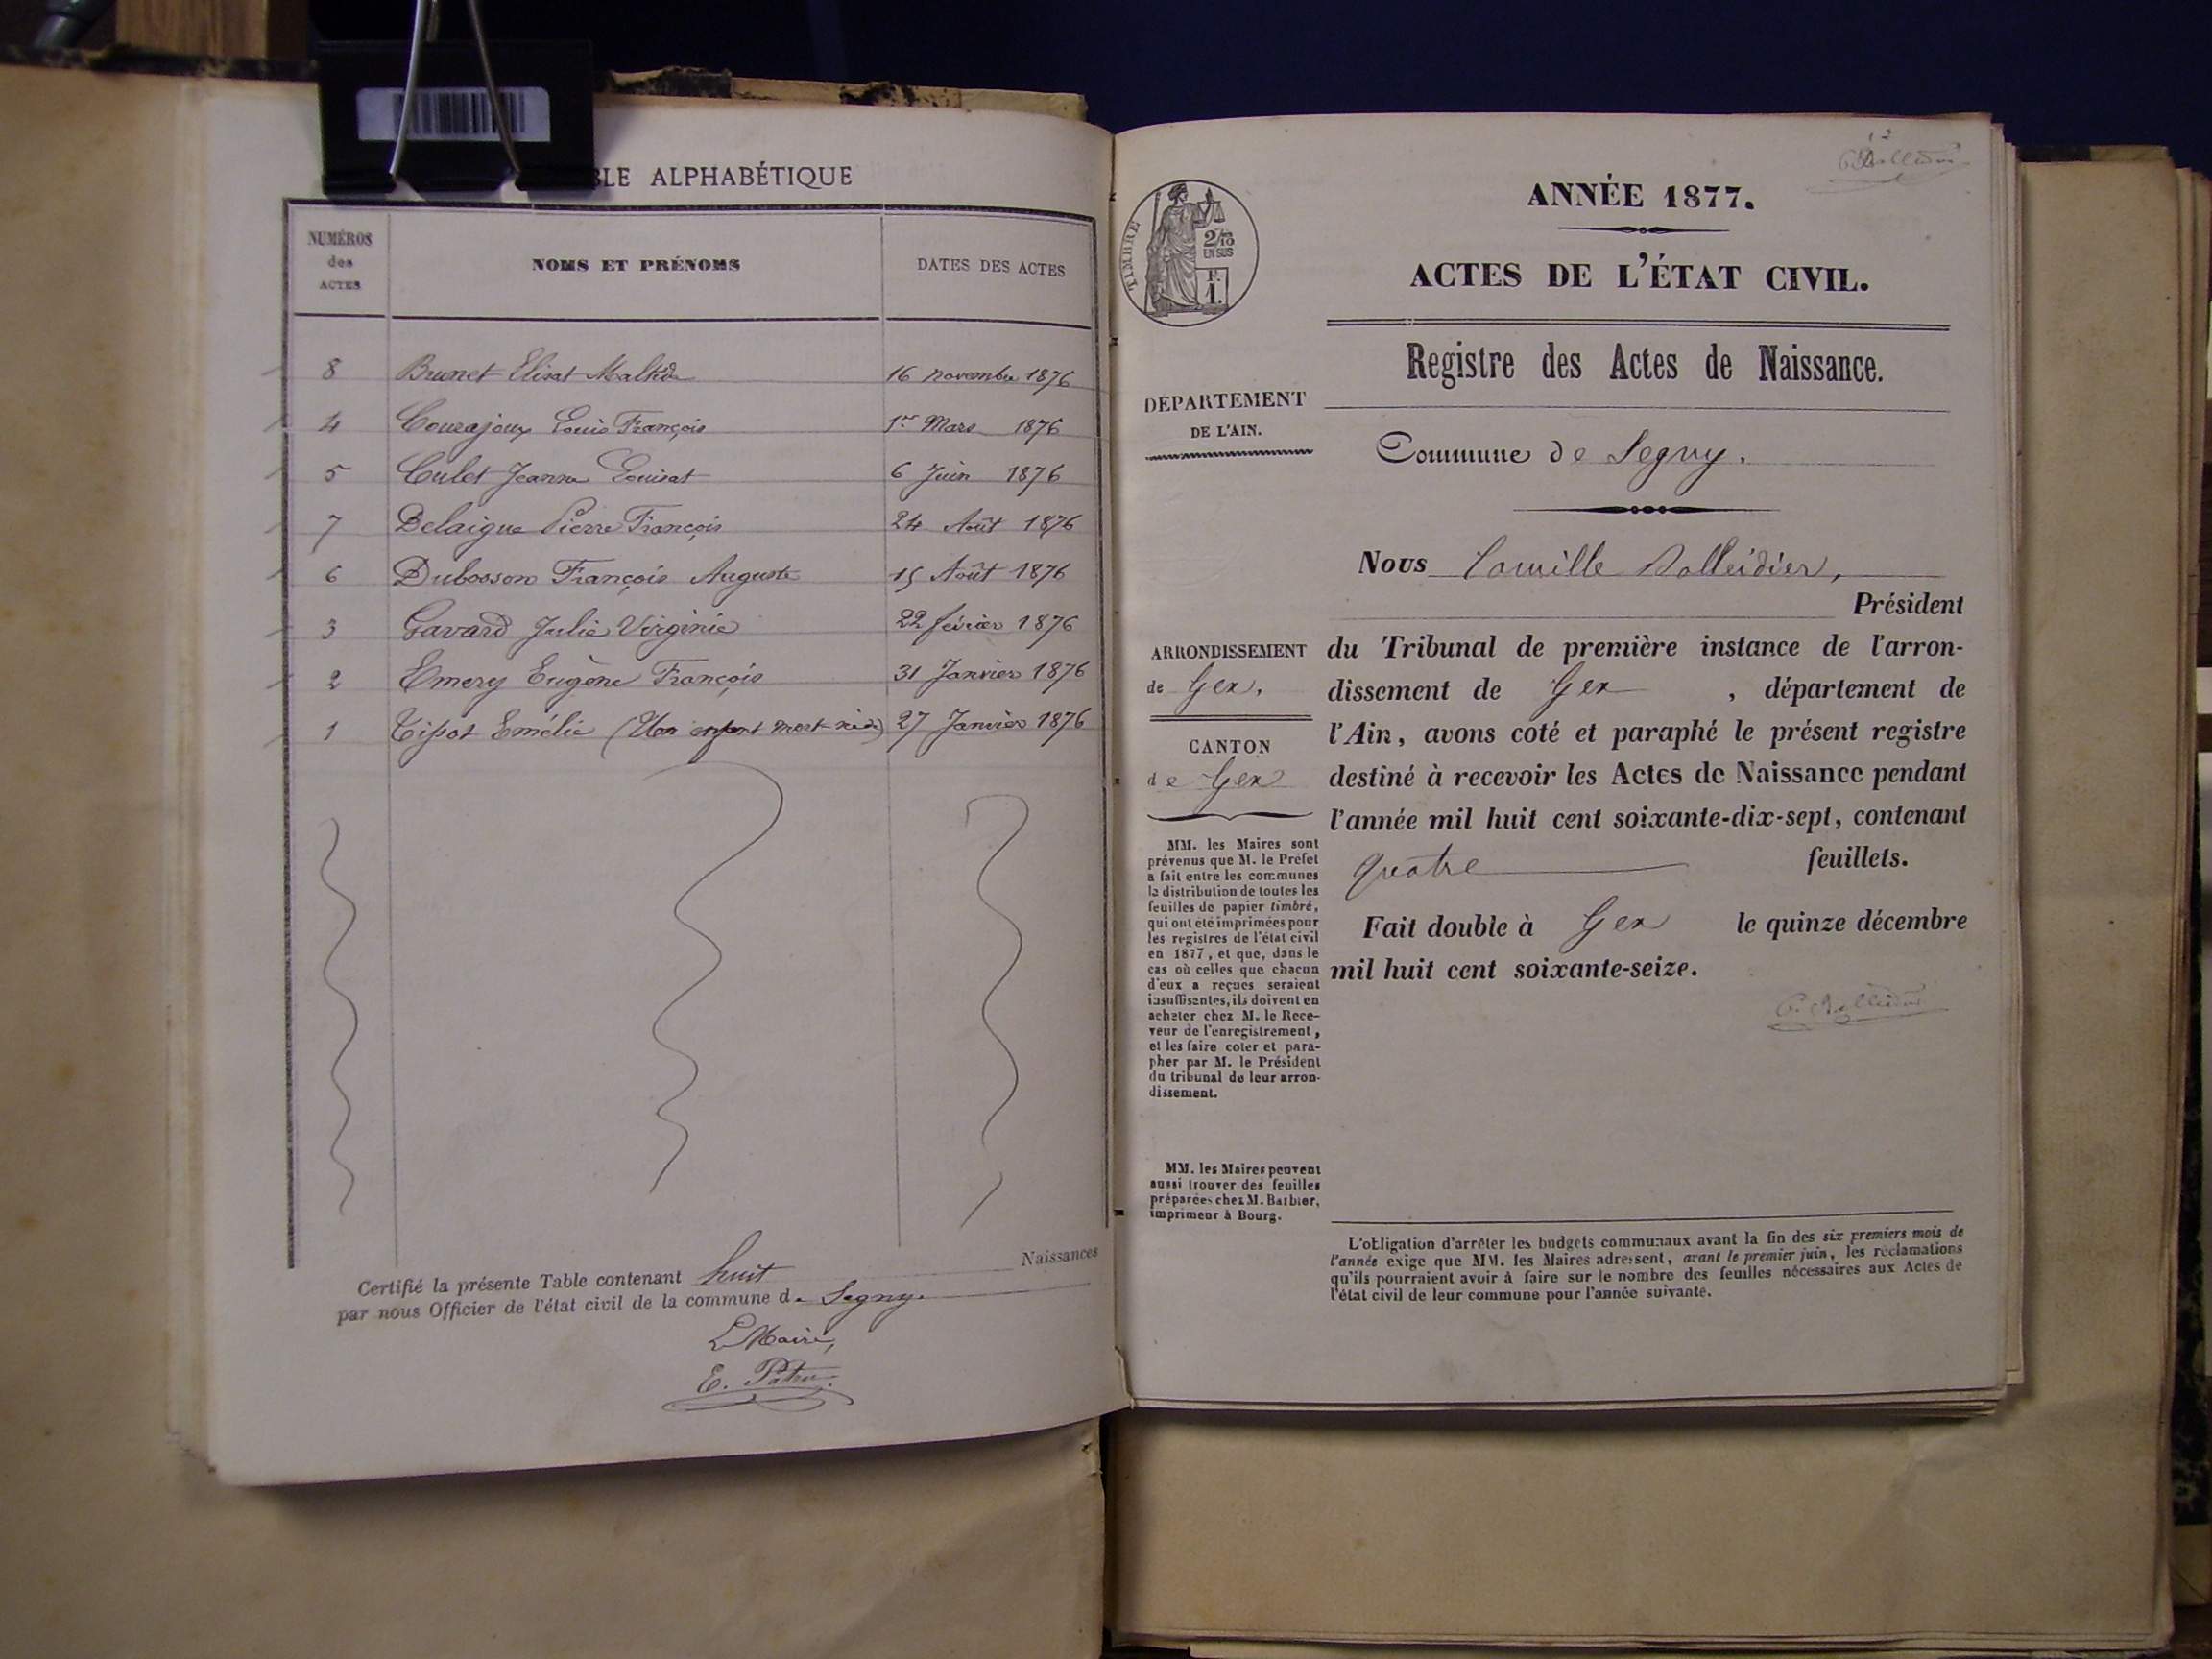 BLE ALPHABÉTIQUE
NUMÉROS des ACTES
NOMS ET PRÉNOMS
DATES DES ACTES
8 Brunet Elisat Maltide 16 novembre 1876
4 Courajoux Louis François 1er Mars 1876
5 Culet Jeanne Louisat 6 Juin 1876
7 Delaigue Pierre François 24 Août 1876
6 Dubosson François Auguste 15 Août 1876
3 Gavard Julie Virginie 22 février 1876
2 Emery Eugène François 31 Janvier 1876
1 Tissot Emélie (Un enfant mort-née) 27 Janvier 1876
Certifié la présente Table contenant huit Naissances
par nous Officier de l'état civil de la commune de Segny.
Le Maire,
E. Patru
2
ANNÉE 1877.
ACTES DE L'ÉTAT CIVIL.
TIMBRE
2/10 EN SUS
F. 1.
Registre des Actes de Naissance.
DÉPARTEMENT
DE L'AIN.
Commune de Segny.
Nous Camille Rolleidier,
Président
du Tribunal de première instance de l'arron-
dissement de Gex, département de
l'Ain, avons coté et paraphé le présent registre
destiné à recevoir les Actes de Naissance pendant
l'année mil huit cent soixante-dix-sept, contenant
quatre feuillets.
Fait double à Gex le quinze décembre
mil huit cent soixante-seize.
ARRONDISSEMENT
de Gex.
CANTON
de Gex
MM. les Maires sont
prévenus que M. le Préfet
a fait entre les communes
la distribution de toutes les
feuilles de papier timbré,
qui ont été imprimées pour
les registres de l'état civil
en 1877, et que, dans le
cas où celles que chacun
d'eux a reçues seraient
insuffisantes, ils doivent en
acheter chez M. le Rece-
veur de l'enregistrement,
et les faire coter et para-
pher par M. le Président
du tribunal de leur arron-
dissement.
MM. les Maires peuvent
aussi trouver des feuilles
préparées chez M. Barbier,
imprimeur à Bourg.
L'obligation d'arrêter les budgets communaux avant la fin des six premiers mois de
l'année exige que MM. les Maires adressent, avant le premier juin, les réclamations
qu'ils pourraient avoir à faire sur le nombre des feuilles nécessaires aux Actes de
l'état civil de leur commune pour l'année suivante.